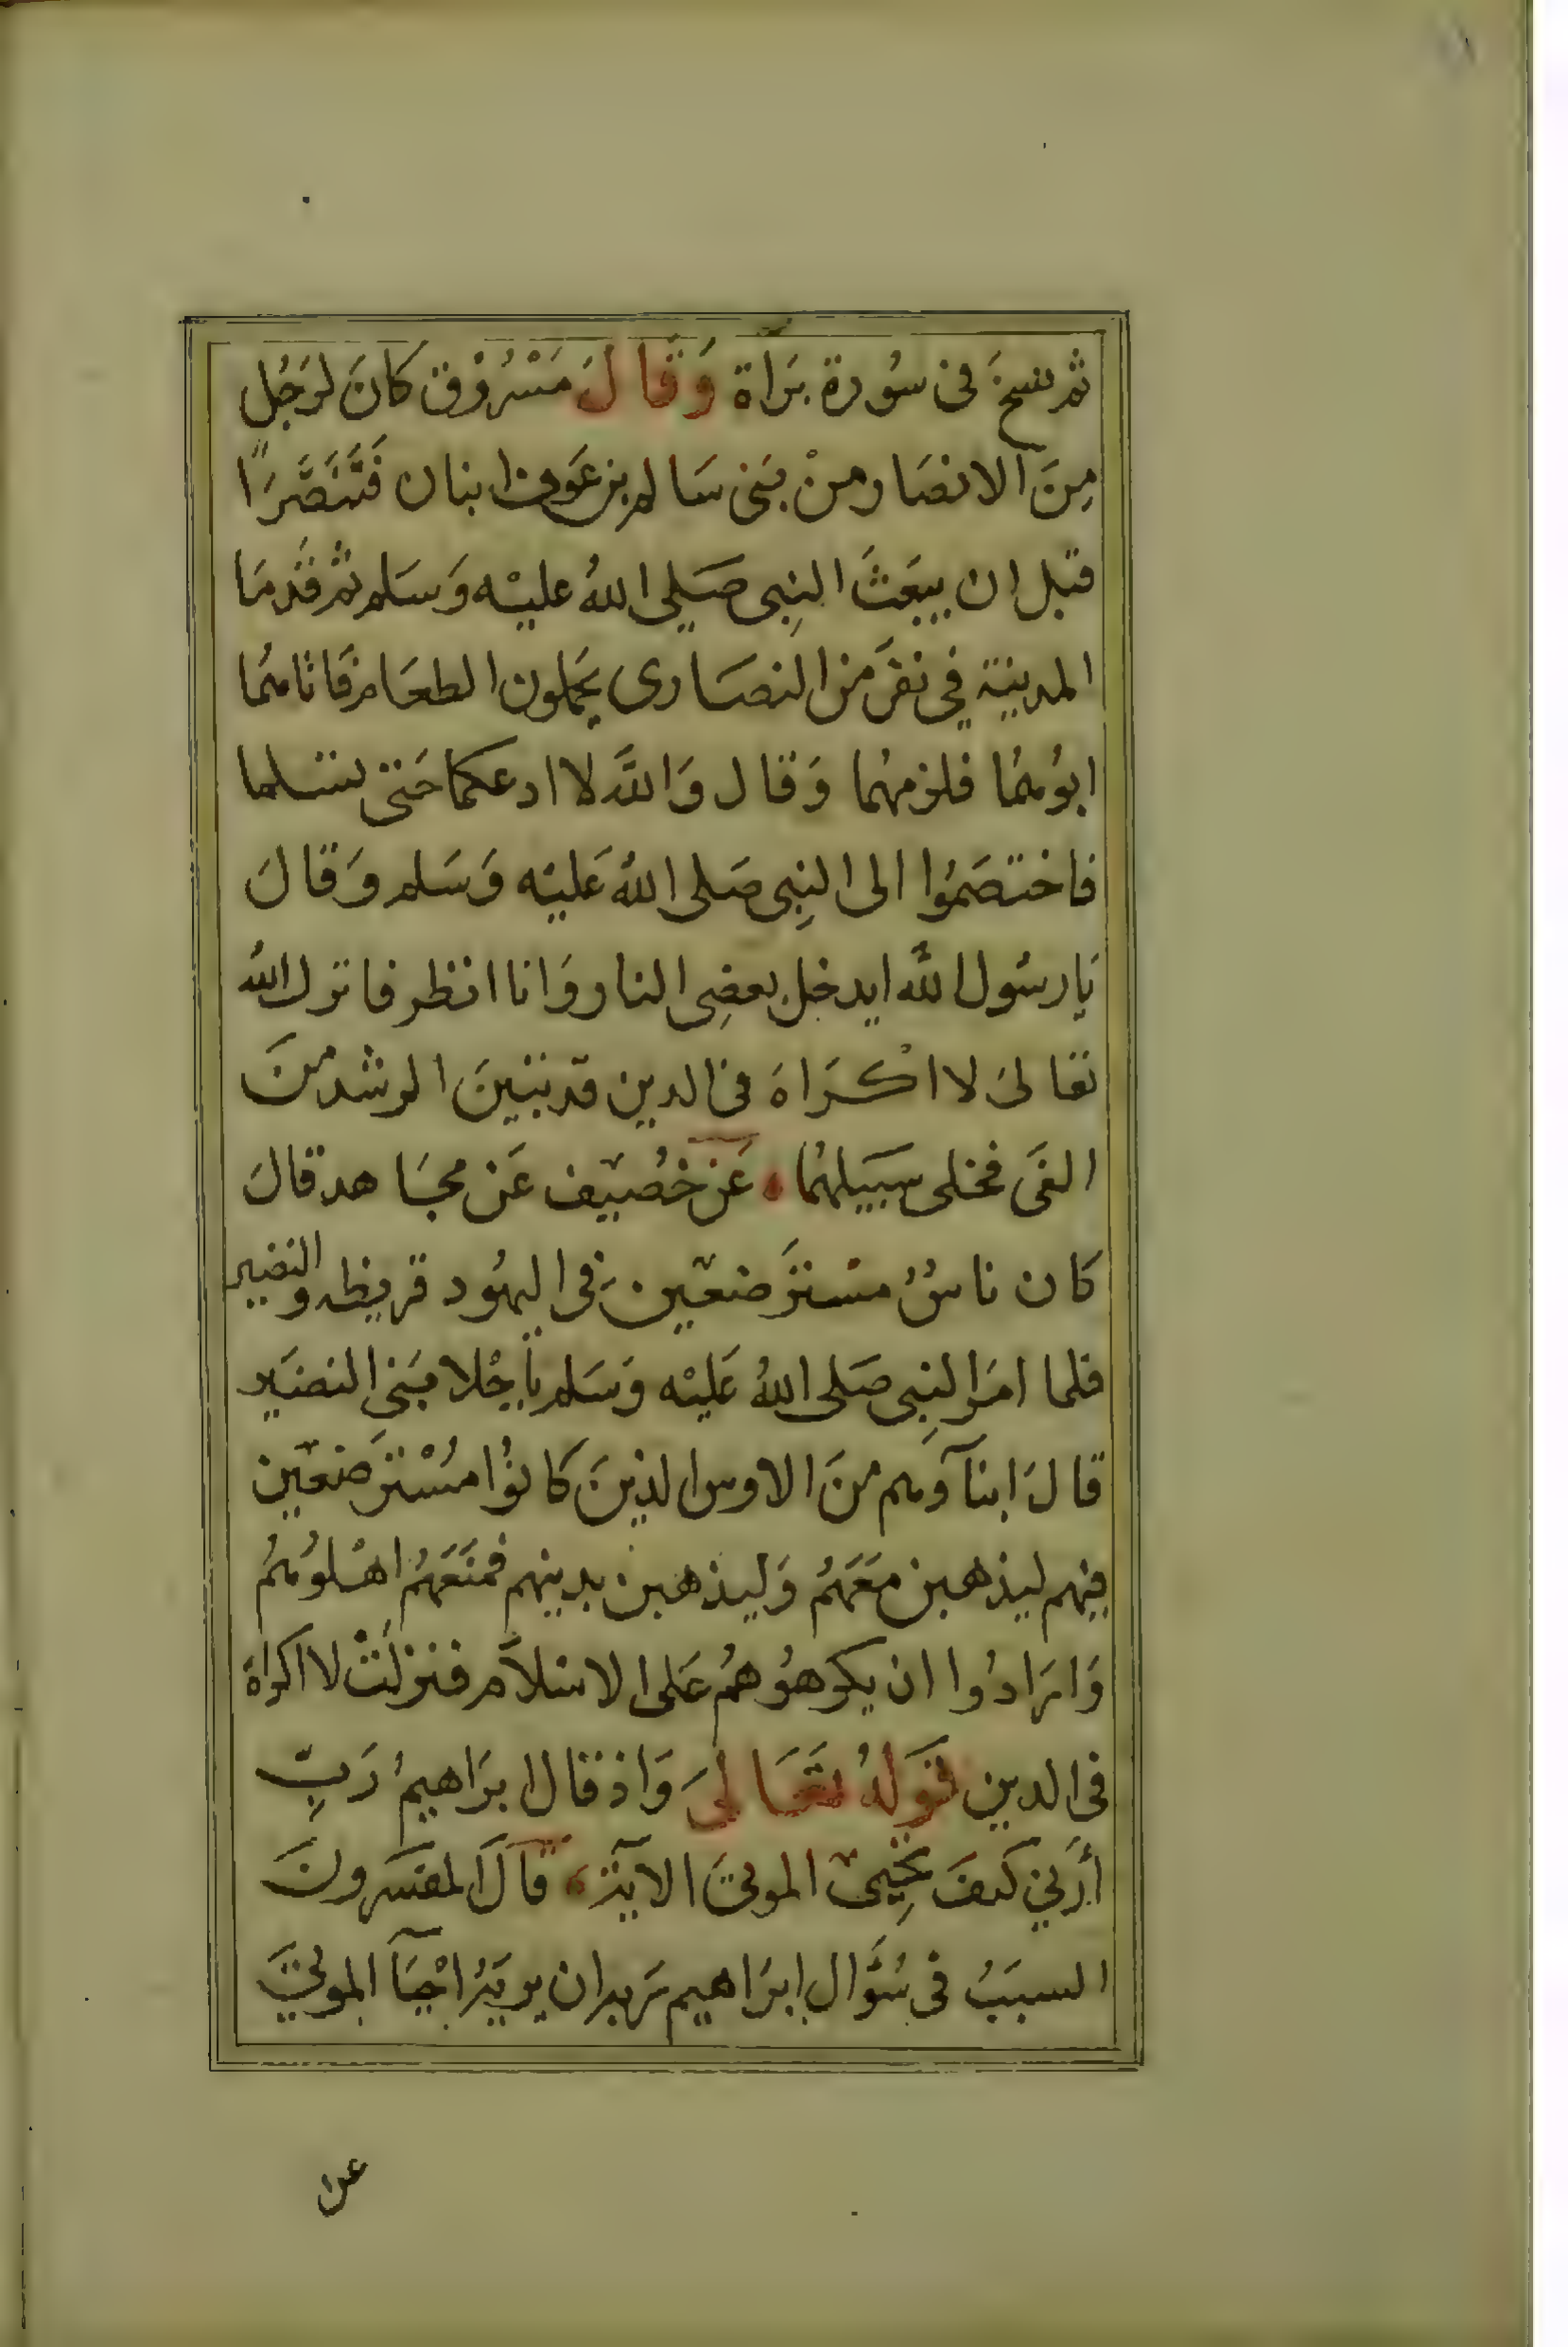 ثم نسخ فى سُورة بَراة وَقَالَ مَسْرُوْق كانَ لرَجُلٍ
مِنَ الانصَار منْ بَنى سَالم بن عَوف ابنان فَتَنَصَّرَا
قبل ان يبعَثَ النبِى صَلى اللهُ عليْه وَسَلم ثم قَدمَا
المدينة فِى نفرَ من النصَارى يحَملون الطعَام فَاتَاهمُا
ابوُهمُا فلزمهُما وَقال وَاللَّه لا ادعكما حَتى تسلما
فاختصَمُوا الى النبِى صَلى اللهُ عَليْه وَسَلم وَقالَ
يَا رسُول اللَّه ايدخل بعضِى النار وَانا انظر فانزل الله
تعَالىَ لا اكْرَاهَ فى الدين قد تبَينَ الرشد منَ
الغَى فخلى سَبيلهُما عَن خُصَيف عَن مجَاهد قالَ
كان ناسُ مسْترَضعَين فِى اليهُود قريظه والنضير
فلما امَر النبِى صَلى اللهُ عَليْه وَسَلم باِجْلا بَنى النضَير
قالَ ابنآوهم منَ الاوس الذينَ كانوُا مسُْترَضعَين
فِيهم ليذهبن معَهَمُ وَليذهبن بدينهم فمنَعَهمُ اهْلوُهمُ
وَارَادُوا ان يكرهوُهمُ عَلى الاسلاَم فنزلَتْ لا اكراهَ
فى الدين قَولهُ تعَالىَ وَاذ قال ابرَاهيمُ رَبِّ
أَرِني كيفَ تحُيِى الموتىَ الآية قالَ المفسرونَ
السبَبُ فى سُؤَال ابرَاهيم رَبه ان يريَهُ احْيَآ الموتىَ
عن